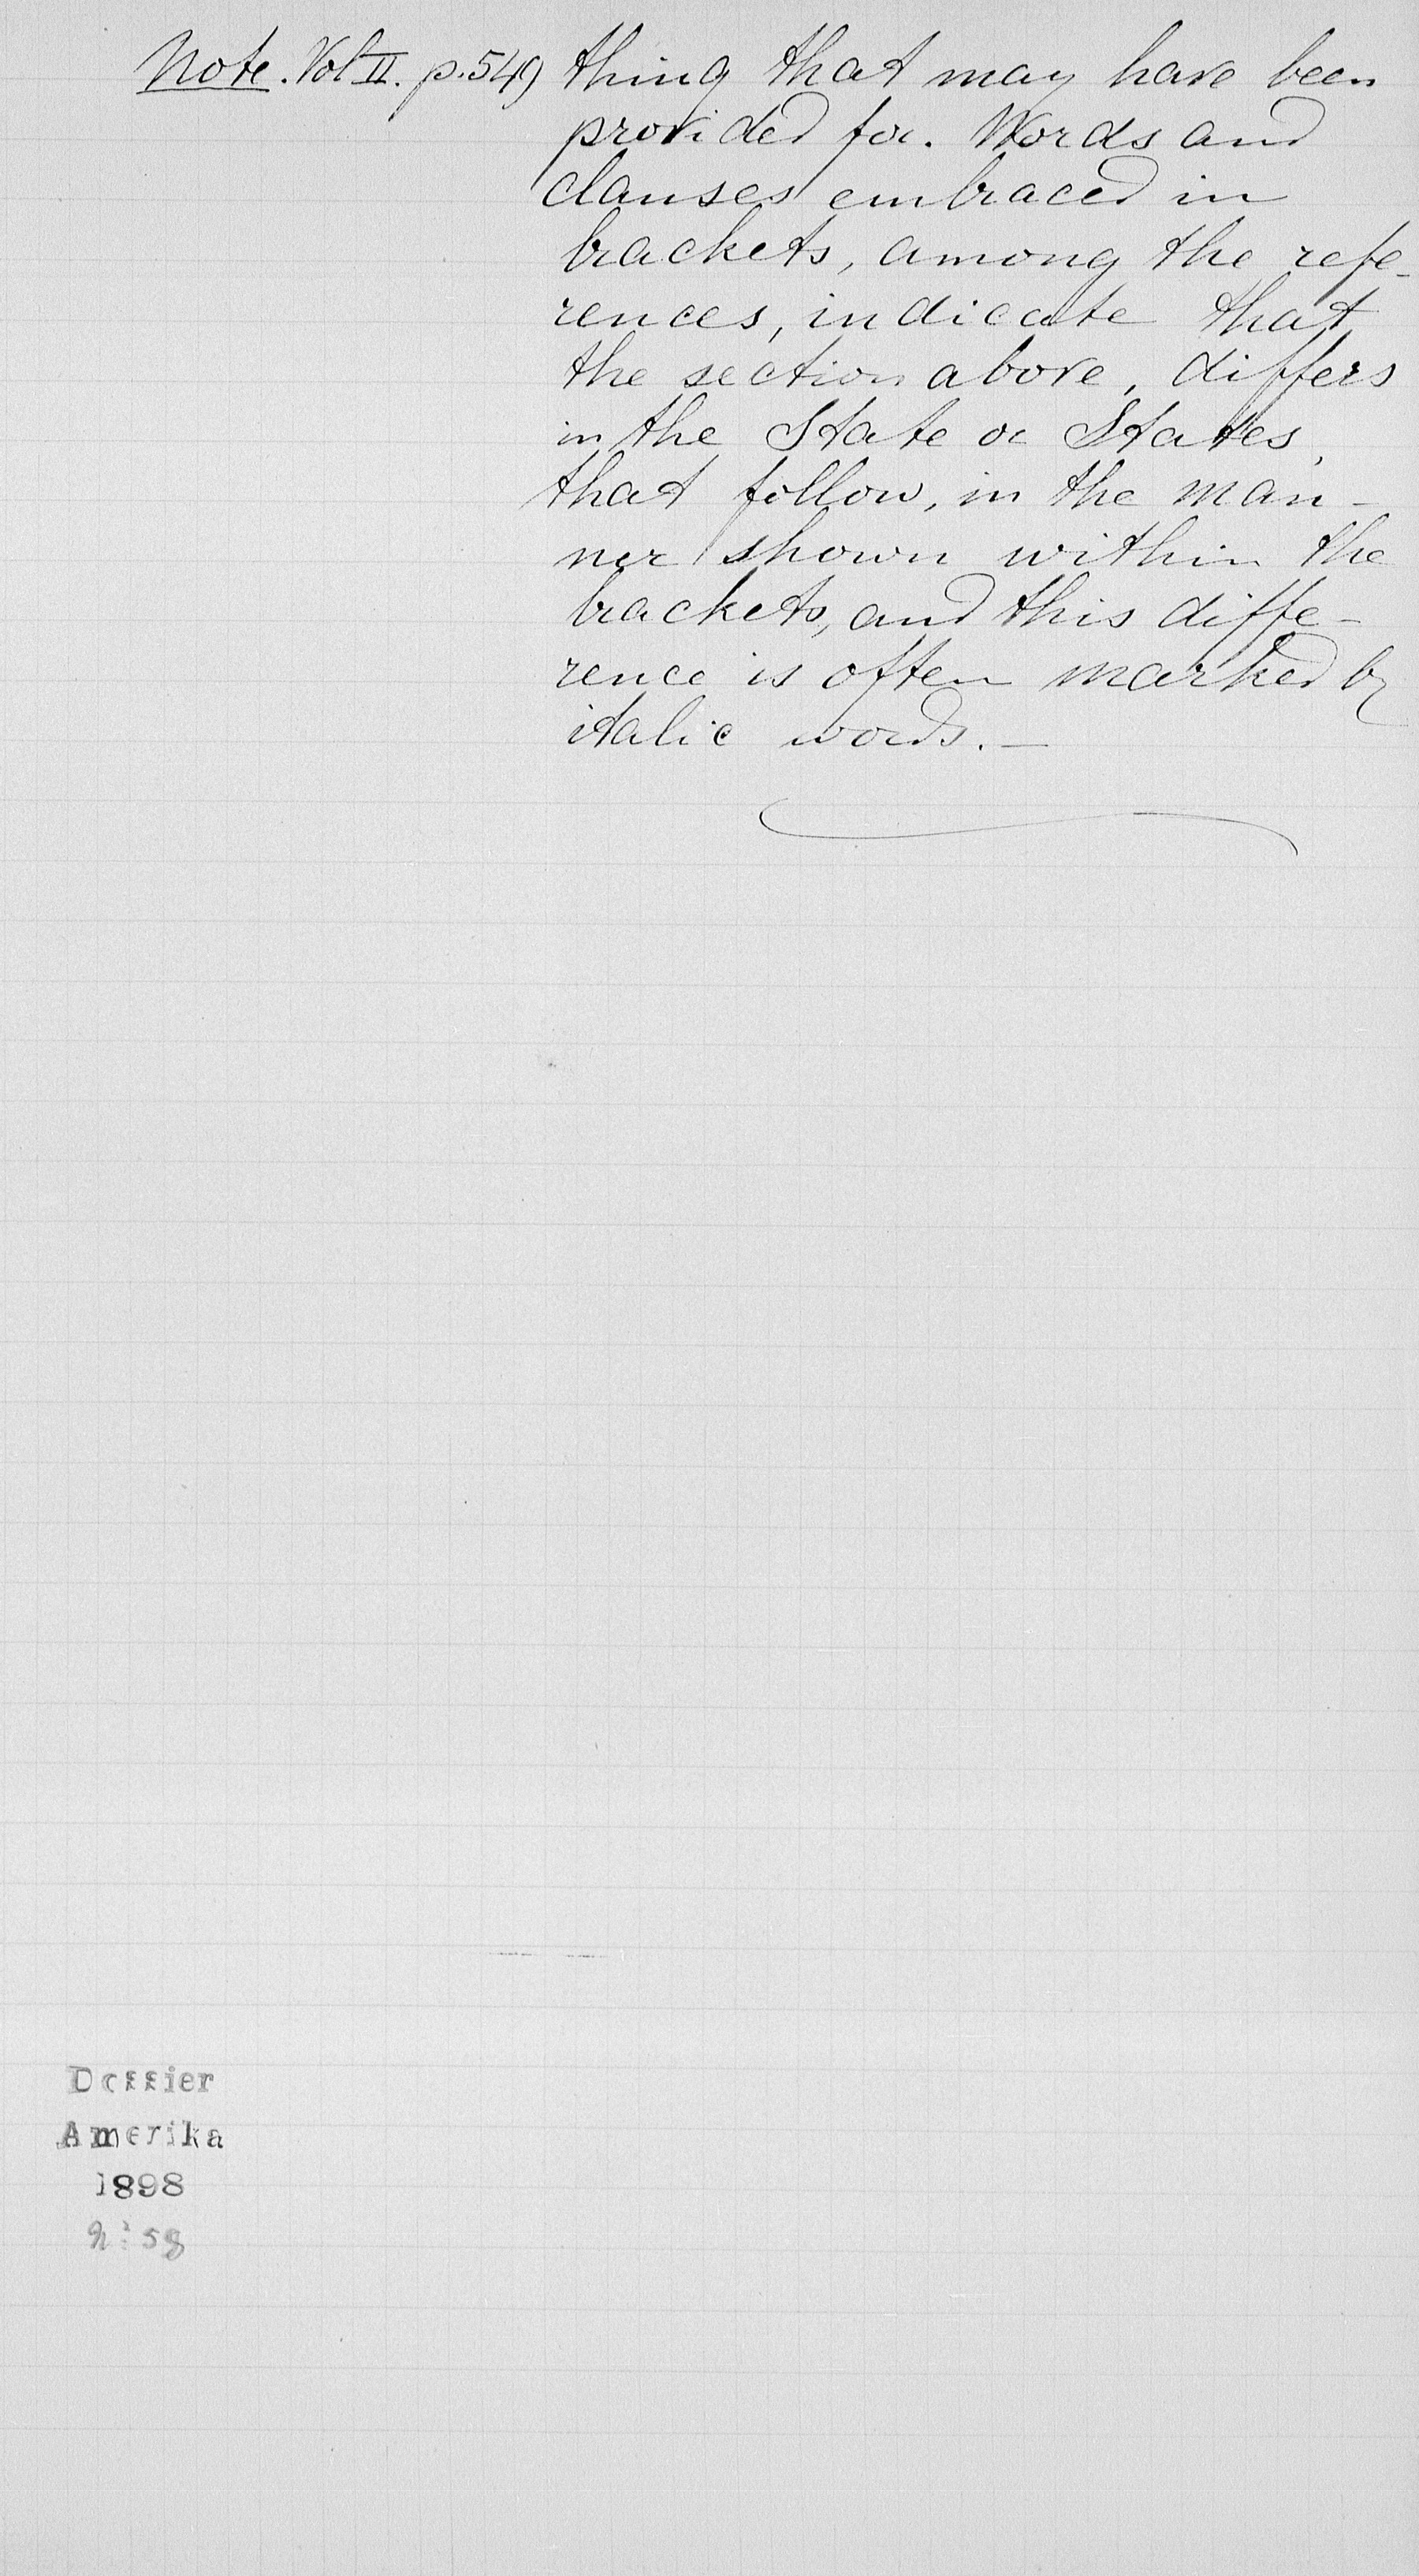 Note. Vol II. p. 549 thing that may have been
provided for. Words and
clauses embraced in
brackets, among the refe-
rences, indicate that
the section above, differs
in the State or States,
that follow, in the man-
ner shown within the
brackets, and this diffe-
rence is often marked by
italic words. —
Dossier
Amerika
1898